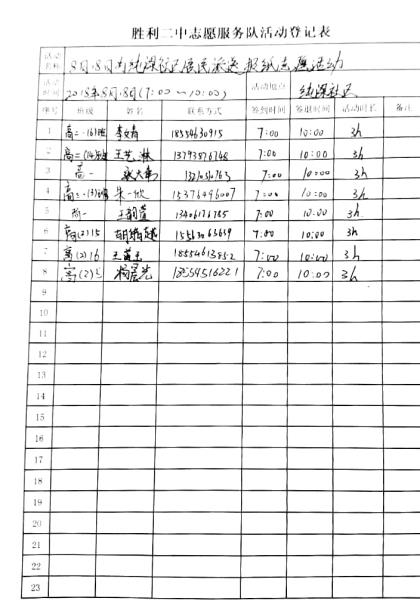 胜利二中志愿服务队活动登记表
活动名称 8月18日为纯梁社区居民派送报纸志愿活动
活动时间 2018年8月18日(7:00～10:00) 活动地点 纯梁社区
序号 班级 姓名 联系方式 签到时间 签退时间 活动时长 备注
1 高二·16班 李文青 18554630915 7:00 10:00 3h
2 高二(14)班 王艺淋 13793876748 7:00 10:00 3h
3 高一 7:00 10:00 3h
4 高二·(3)班 朱一欣 15376496007 7:00 10:00 3h
5 高一 王韵萱 13406176785 7:00 10:00 3h
6 高(2)15 15563663659 7:00 10:00 3h
7 高(2)16 王茜玉 18554613852 7:00 10:00 3h
8 高(2)5 杨晨光 18554516221 7:00 10:00 3h
9
10
11
12
13
14
15
16
17
18
19
20
21
22
23